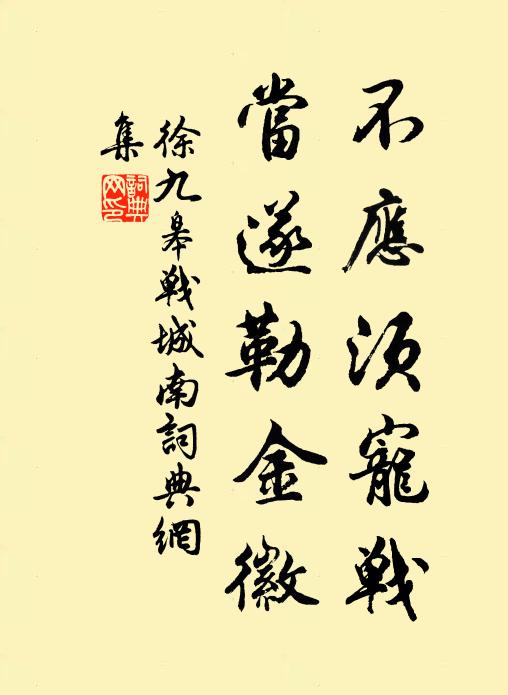 不應須寵戰
當遂勒金徽
徐九皋戰城南詞典網
集
詞典
网印